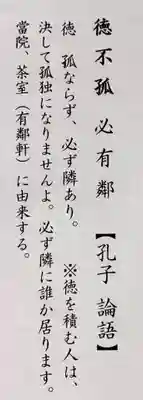 徳不孤 必有鄰 【孔子 論語】
徳 孤ならず、必ず隣あり。 ※徳を積む人は、
決して孤独になりませんよ。必ず隣に誰か居ります。
當院、茶室（有鄰軒）に由来する。